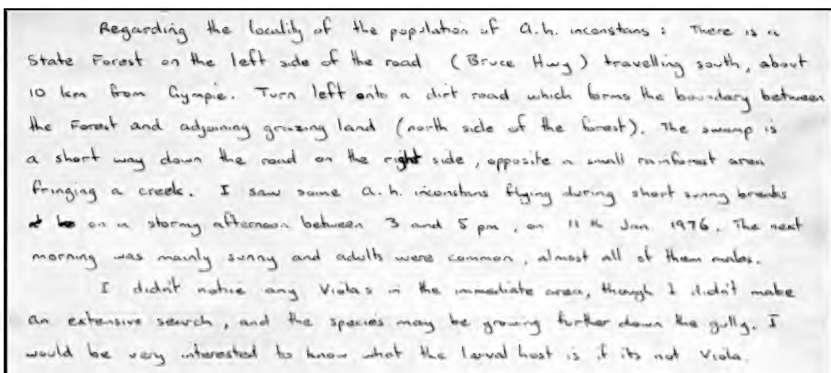 Regarding the locality of the population of A.h. inconstans : There is a
State Forest on the left side of the road (Bruce Hwy) travelling south, about
10 km from Gympie. Turn left onto a dirt road which forms the boundary between
the Forest and adjoining grazing land (north side of the forest). The swamp is
a short way down the road on the right side, opposite a small rainforest area
fringing a creek. I saw some A.h. inconstans flying during short sunny breaks
on a stormy afternoon between 3 and 5 pm, on 11 th Jan. 1976. The next
morning was mainly sunny and adults were common, almost all of them males.
I didn't notice any Violas in the immediate area, though I didn't make
an extensive search, and the species may be growing further down the gully. I
would be very interested to know what the larval host is if its not Viola.